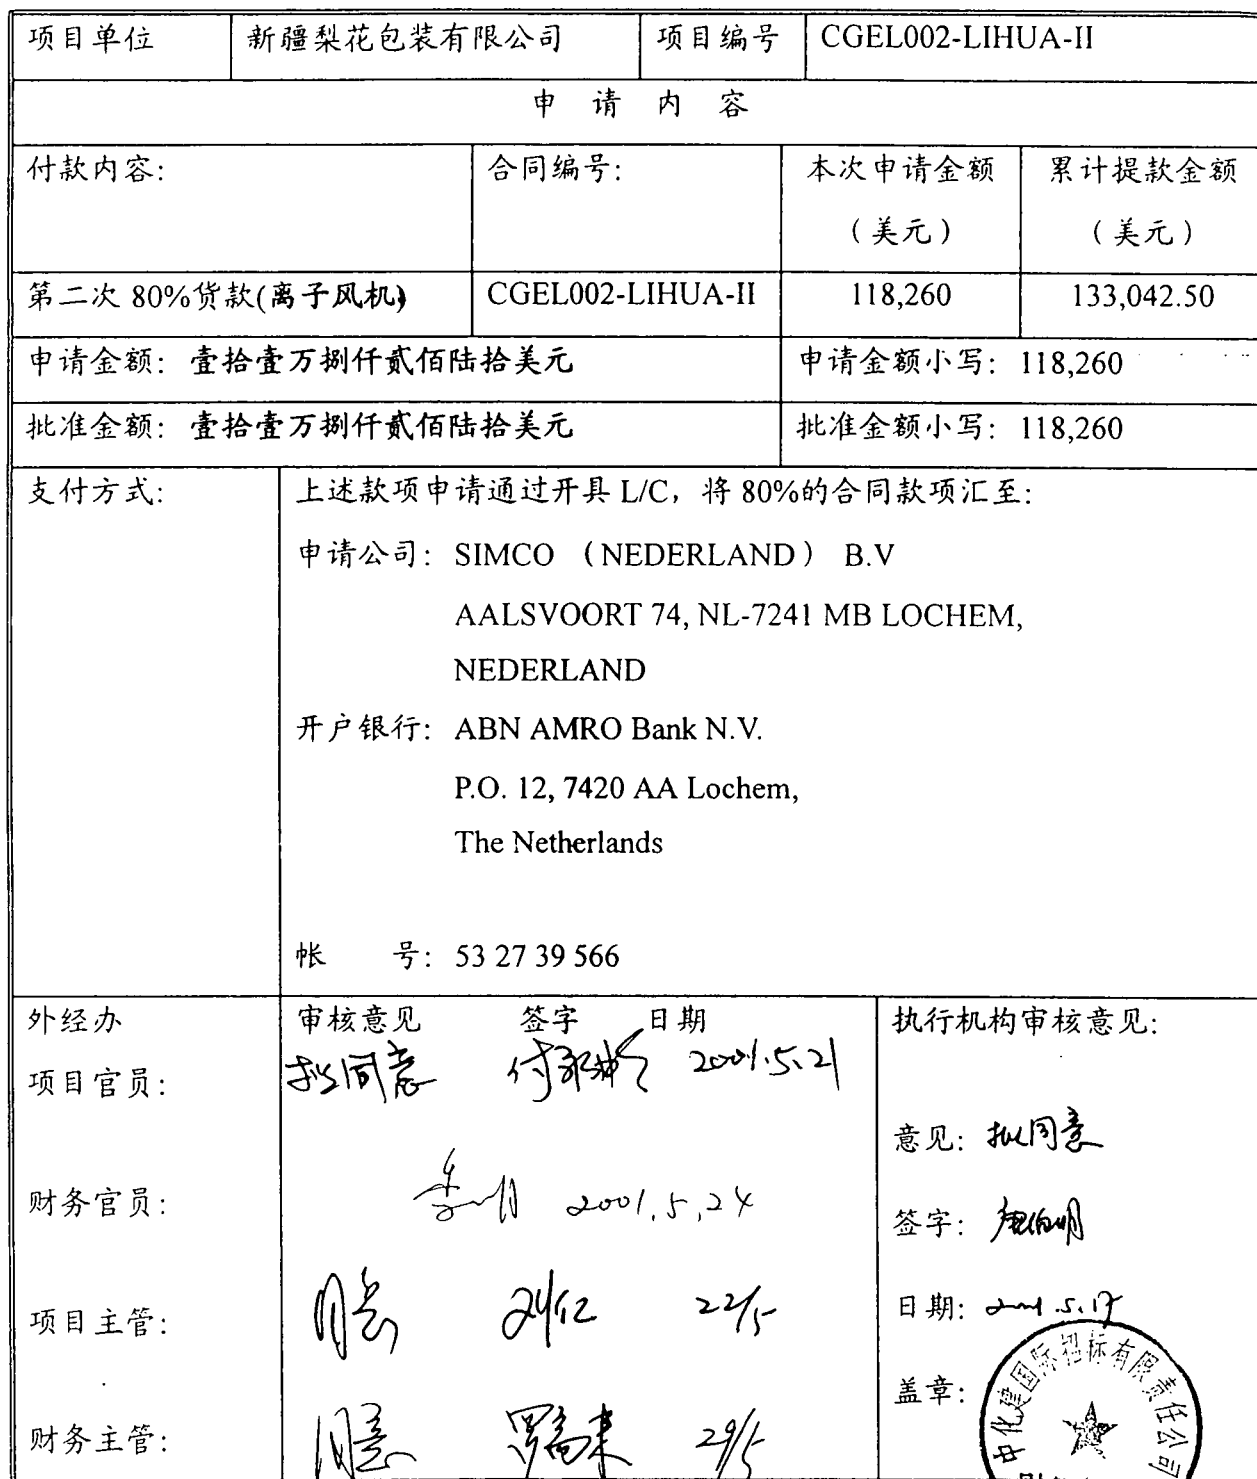 项目单位 新疆梨花包装有限公司 项目编号 CGEL002-LIHUA-II
申 请 内 容
付款内容: 合同编号: 本次申请金额 累计提款金额
（美元） （美元）
第二次 80%货款(离子风机) CGEL002-LIHUA-II 118,260 133,042.50
申请金额: 壹拾壹万捌仟贰佰陆拾美元 申请金额小写: 118,260
批准金额: 壹拾壹万捌仟贰佰陆拾美元 批准金额小写: 118,260
支付方式: 上述款项申请通过开具 L/C，将 80%的合同款项汇至:
申请公司: SIMCO （NEDERLAND） B.V
AALSVOORT 74, NL-7241 MB LOCHEM,
NEDERLAND
开户银行: ABN AMRO Bank N.V.
P.O. 12, 7420 AA Lochem,
The Netherlands
帐 号: 53 27 39 566
外经办 审核意见 签字 日期 执行机构审核意见:
项目官员: 拟同意 2001.5.21
意见: 拟同意
财务官员: 2001.5.24
签字:
项目主管: 同意 22/5
日期: 2001.5.17
盖章:
财务主管: 同意 29/5
中化建国际招标有限责任公司